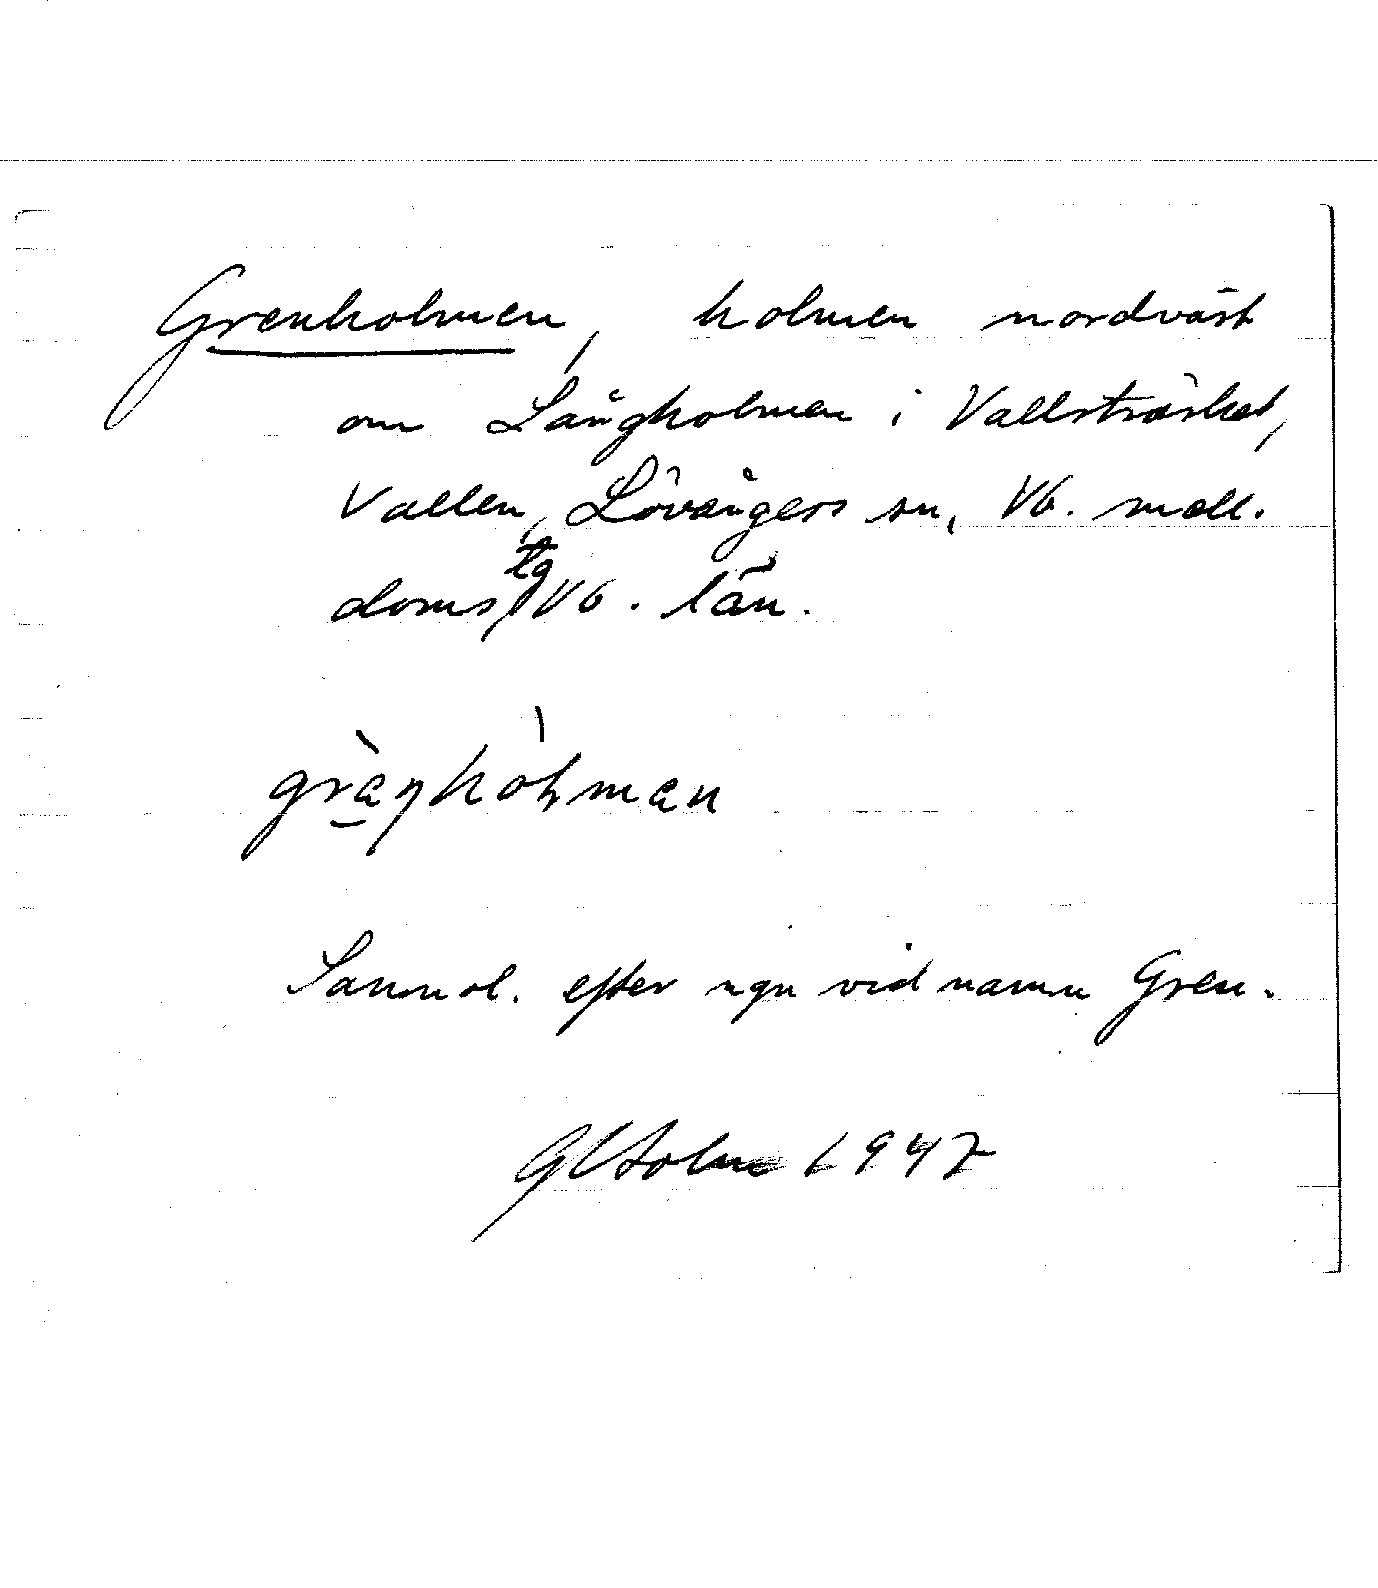 Grenholmen, holmen nordväst
om Långholmen i Vallsträsket,
Vallen, Lövångers sn, Vb. mell.
doms tg Vb. län.
Sannol. efter ngn vid namn Gren.
1947